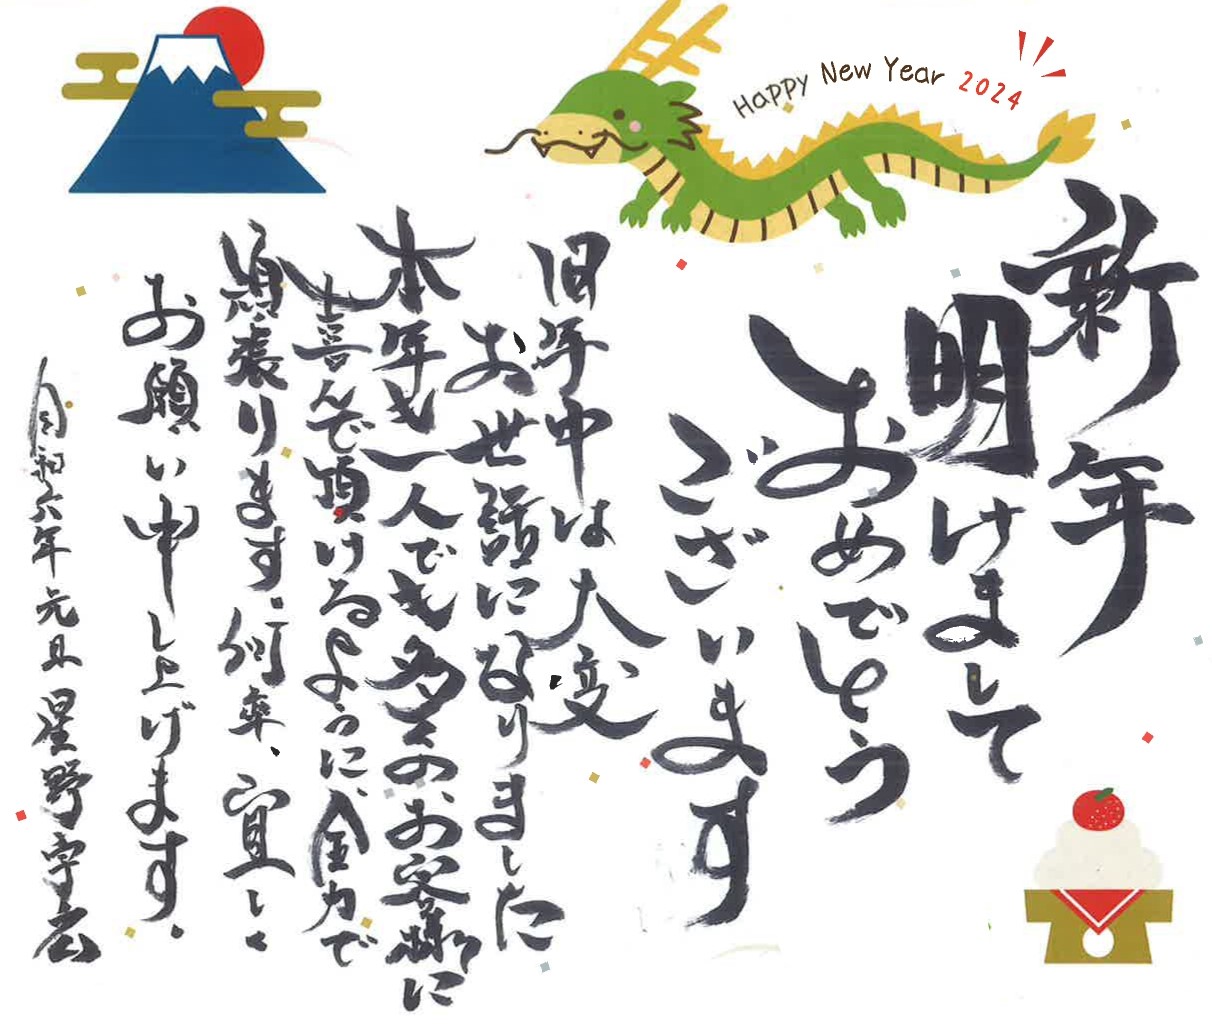 Happy New Year 2024
新年
明けまして
おめでとう
ございます
旧年中は大変
お世話になりました
本年も一人でも多くのお客様に
喜んで頂けるように、全力で
頑張ります。何卒、宜しく
お願い申し上げます。
令和六年元旦 星野